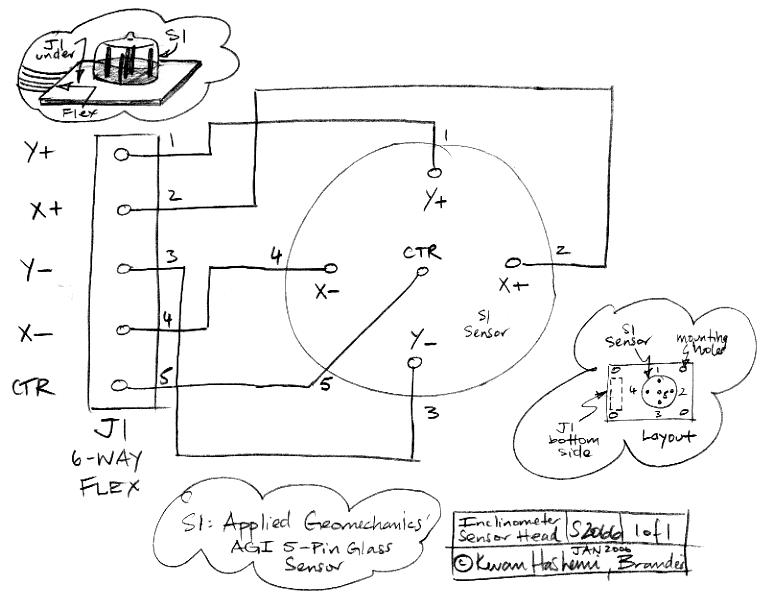 J1
under
S1
Flex
Y+
1
1
X+
2
Y+
Y-
3
4
CTR
2
X-
X+
X-
4
S1
Sensor
Y-
CTR
5
5
3
J1
6-WAY
FLEX
S1
Sensor
mounting
holes
1
4
5
2
3
J1
bottom
side
Layout
S1: Applied Geomechanics'
AGI 5-Pin Glass
Sensor
Inclinometer
Sensor Head
S2066
1 of 1
JAN 2006
© Kevan Hashemi, Brandeis